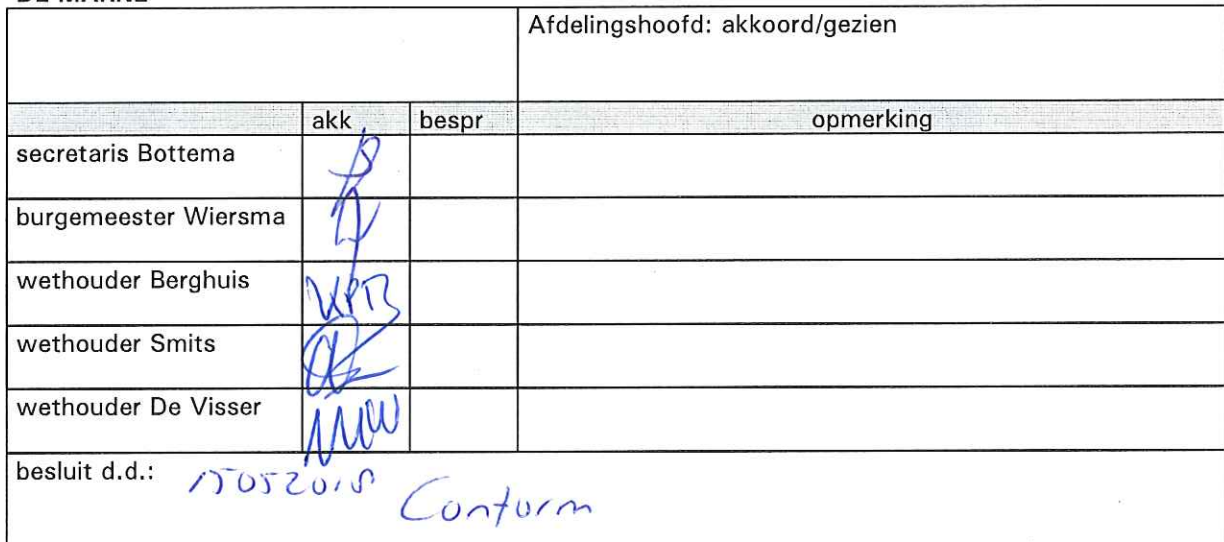 Afdelingshoofd: akkoord/gezien
akk bespr opmerking
secretaris Bottema
burgemeester Wiersma
wethouder Berghuis
wethouder Smits
wethouder De Visser
besluit d.d.: 15052018 Conform